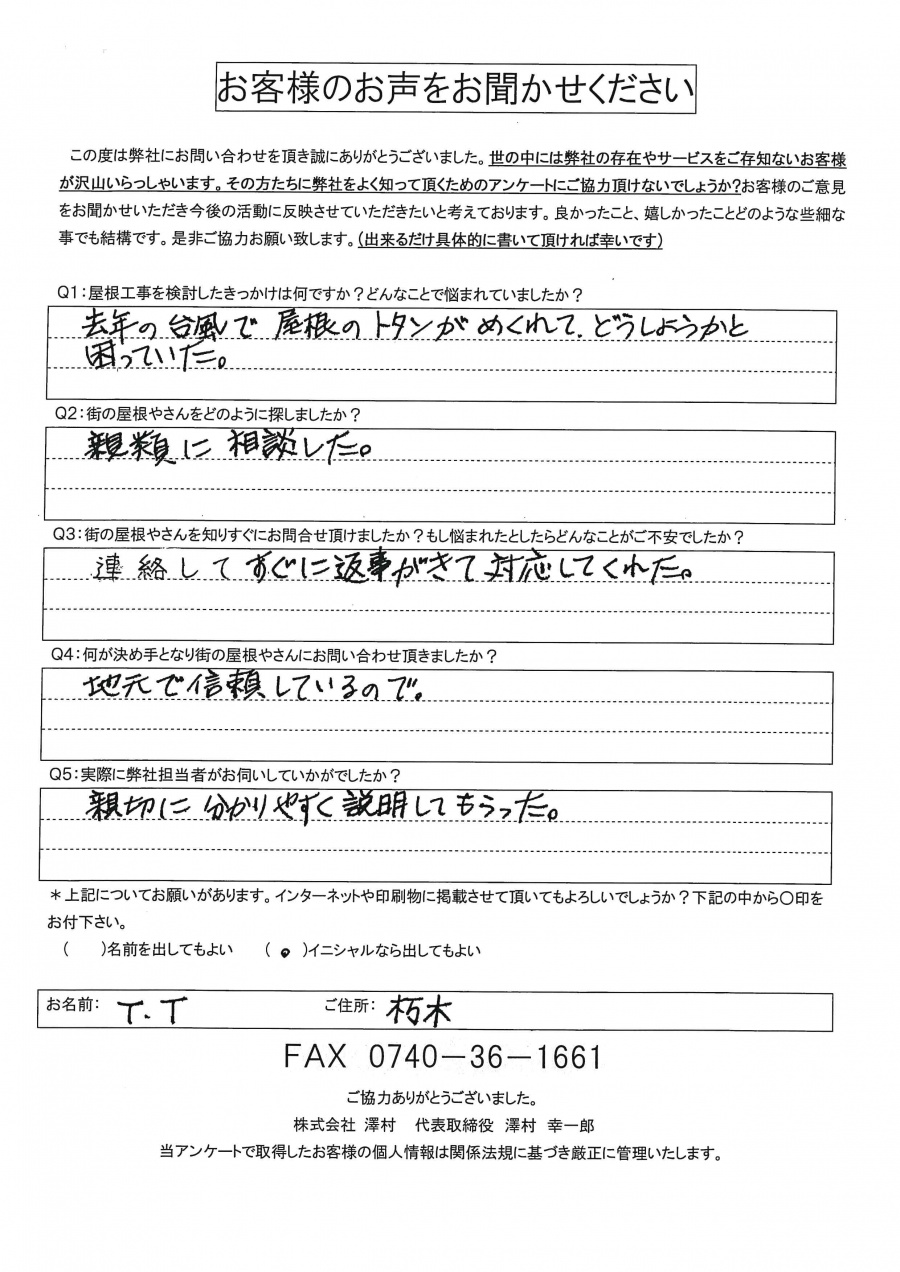 お客様のお声をお聞かせください
この度は弊社にお問い合わせを頂き誠にありがとうございました。世の中には弊社の存在やサービスをご存知ないお客様
が沢山いらっしゃいます。その方たちに弊社をよく知って頂くためのアンケートにご協力頂けないでしょうか?お客様のご意見
をお聞かせいただき今後の活動に反映させていただきたいと考えております。良かったこと、嬉しかったことどのような些細な
事でも結構です。是非ご協力お願い致します。(出来るだけ具体的に書いて頂ければ幸いです)
Q1:屋根工事を検討したきっかけは何ですか?どんなことで悩まれていましたか?
去年の台風で屋根のトタンがめくれて、どうしようかと
困っていた。
Q2:街の屋根やさんをどのように探しましたか?
親類に相談した。
Q3:街の屋根やさんを知りすぐにお問合せ頂けましたか?もし悩まれたとしたらどんなことがご不安でしたか?
連絡してすぐに返事がきて対応してくれた。
Q4:何が決め手となり街の屋根やさんにお問い合わせ頂きましたか?
地元で信頼しているので。
Q5:実際に弊社担当者がお伺いしていかがでしたか?
親切に分かりやすく説明してもらった。
*上記についてお願いがあります。インターネットや印刷物に掲載させて頂いてもよろしいでしょうか?下記の中から〇印を
お付下さい。
( )名前を出してもよい ( ● )イニシャルなら出してもよい
お名前: T.T ご住所: 朽木
FAX 0740-36-1661
ご協力ありがとうございました。
株式会社 澤村 代表取締役 澤村 幸一郎
当アンケートで取得したお客様の個人情報は関係法規に基づき厳正に管理いたします。